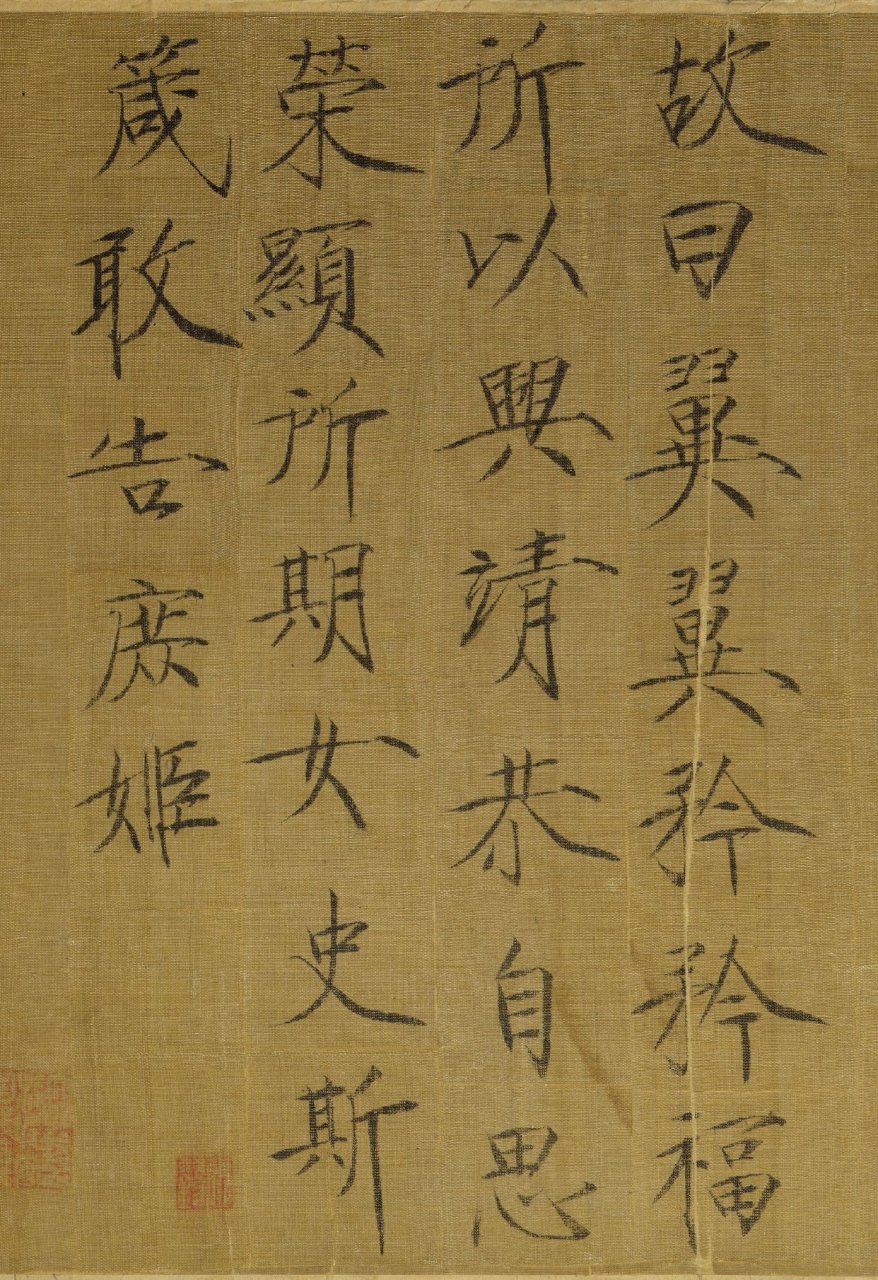 故曰翼翼矜矜福
所以興靖恭自思
榮顯所期女史斯
箴敢告庶姬